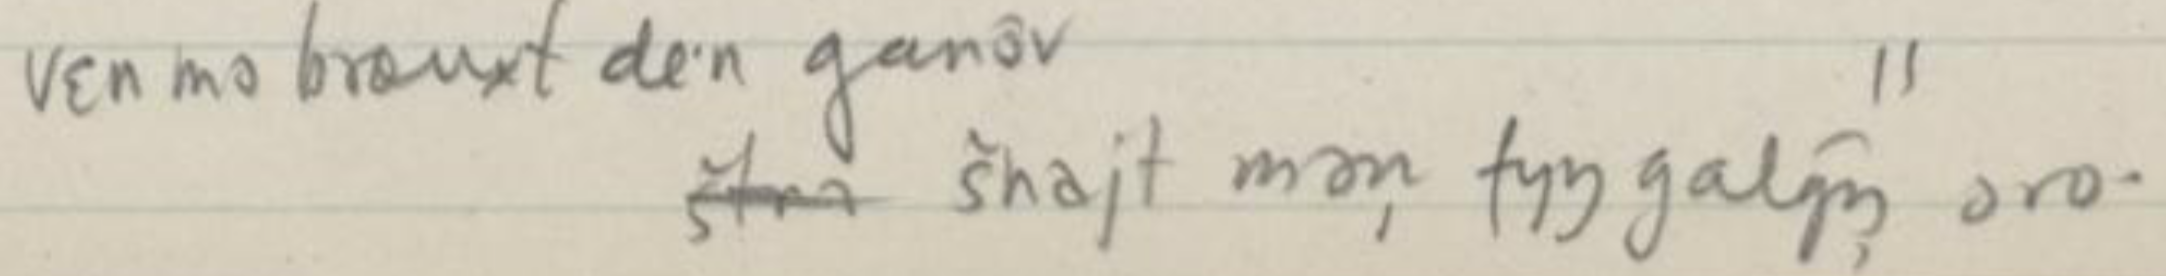 vɛn mə brouxt de·n ganəv
šnajt mən̩ fyŋ galgŋ̩ əro·